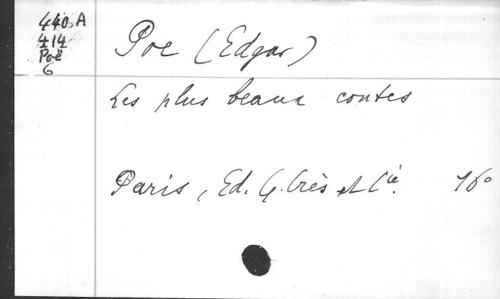 440.A
414
Poë
6
Poe (Edgar)
Les plus beaux contes
Paris, Ed. G. Crès et Cie. 16°